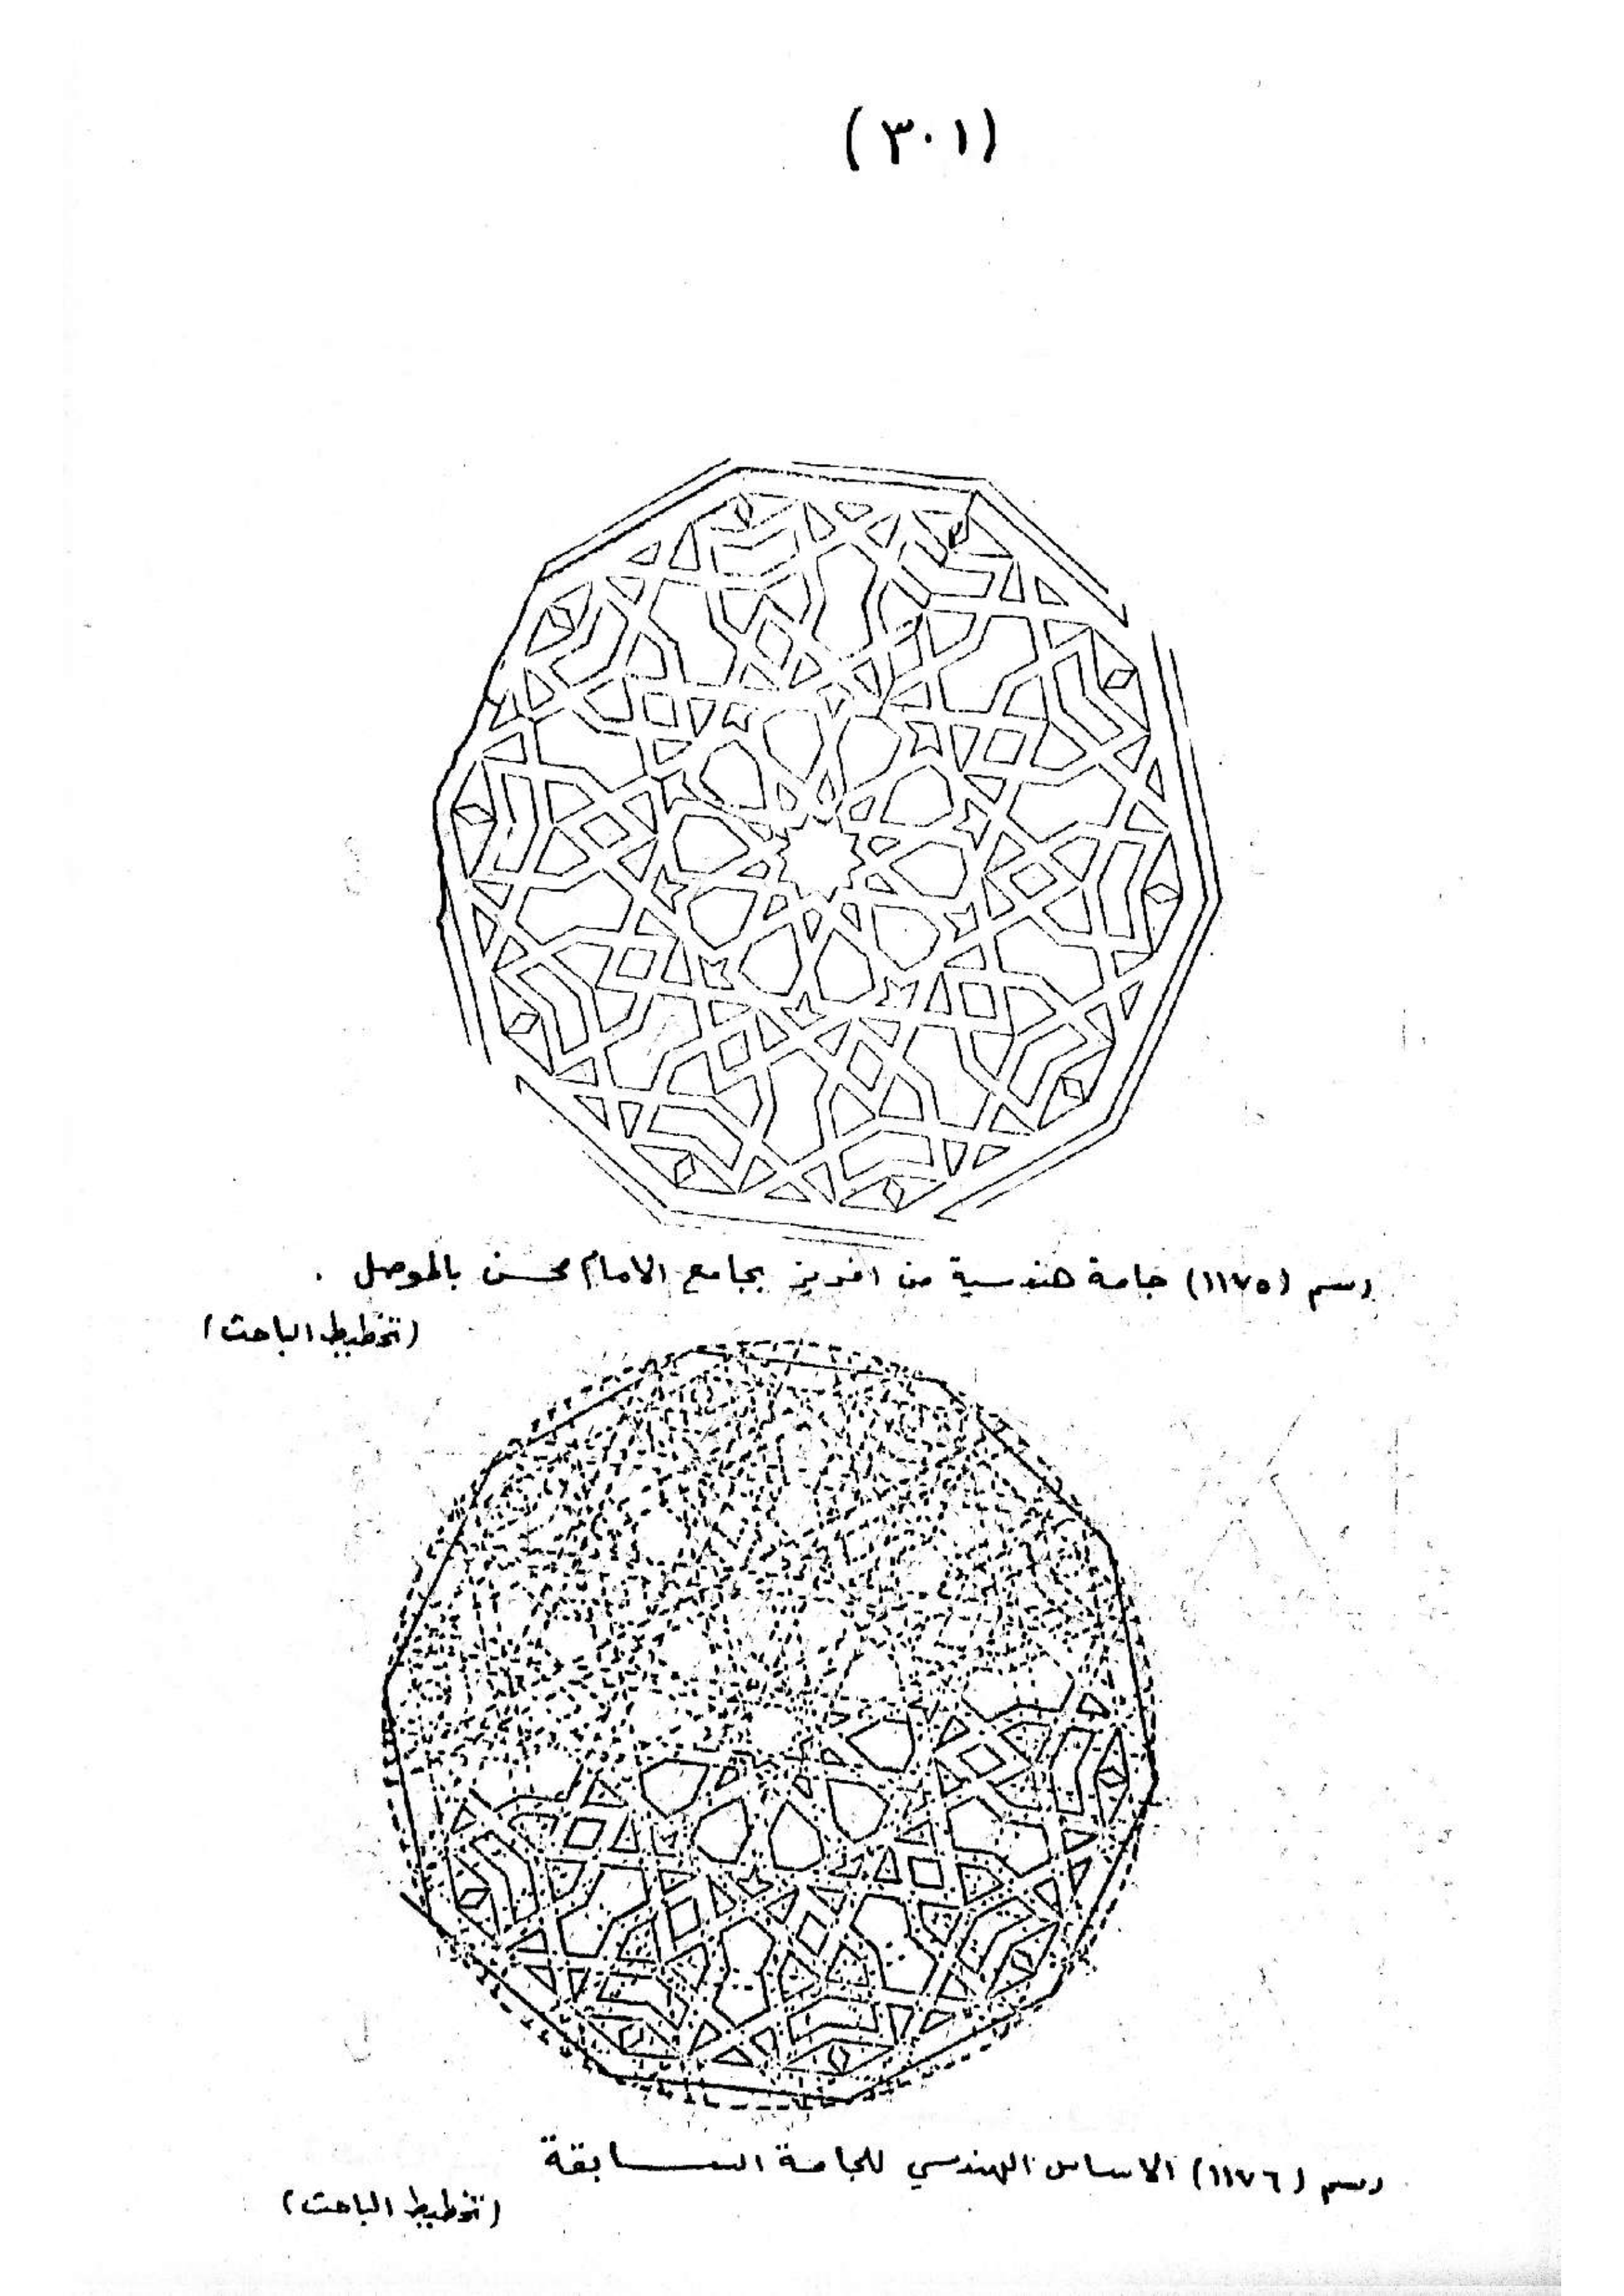 (٣٠١)
رسم (١١٧٥) جامة هندسية من افريز بجامع الامام محسن بالموصل .
(تخطيط الباحث)
رسم (١١٧٦) الاساس الهندسي للجامة السابقة
(تخطيط الباحث)